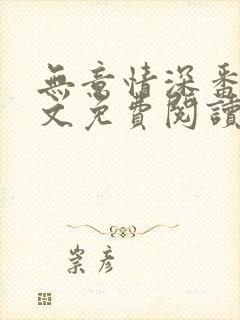 無意情深番
文免費閱讀
崇彥